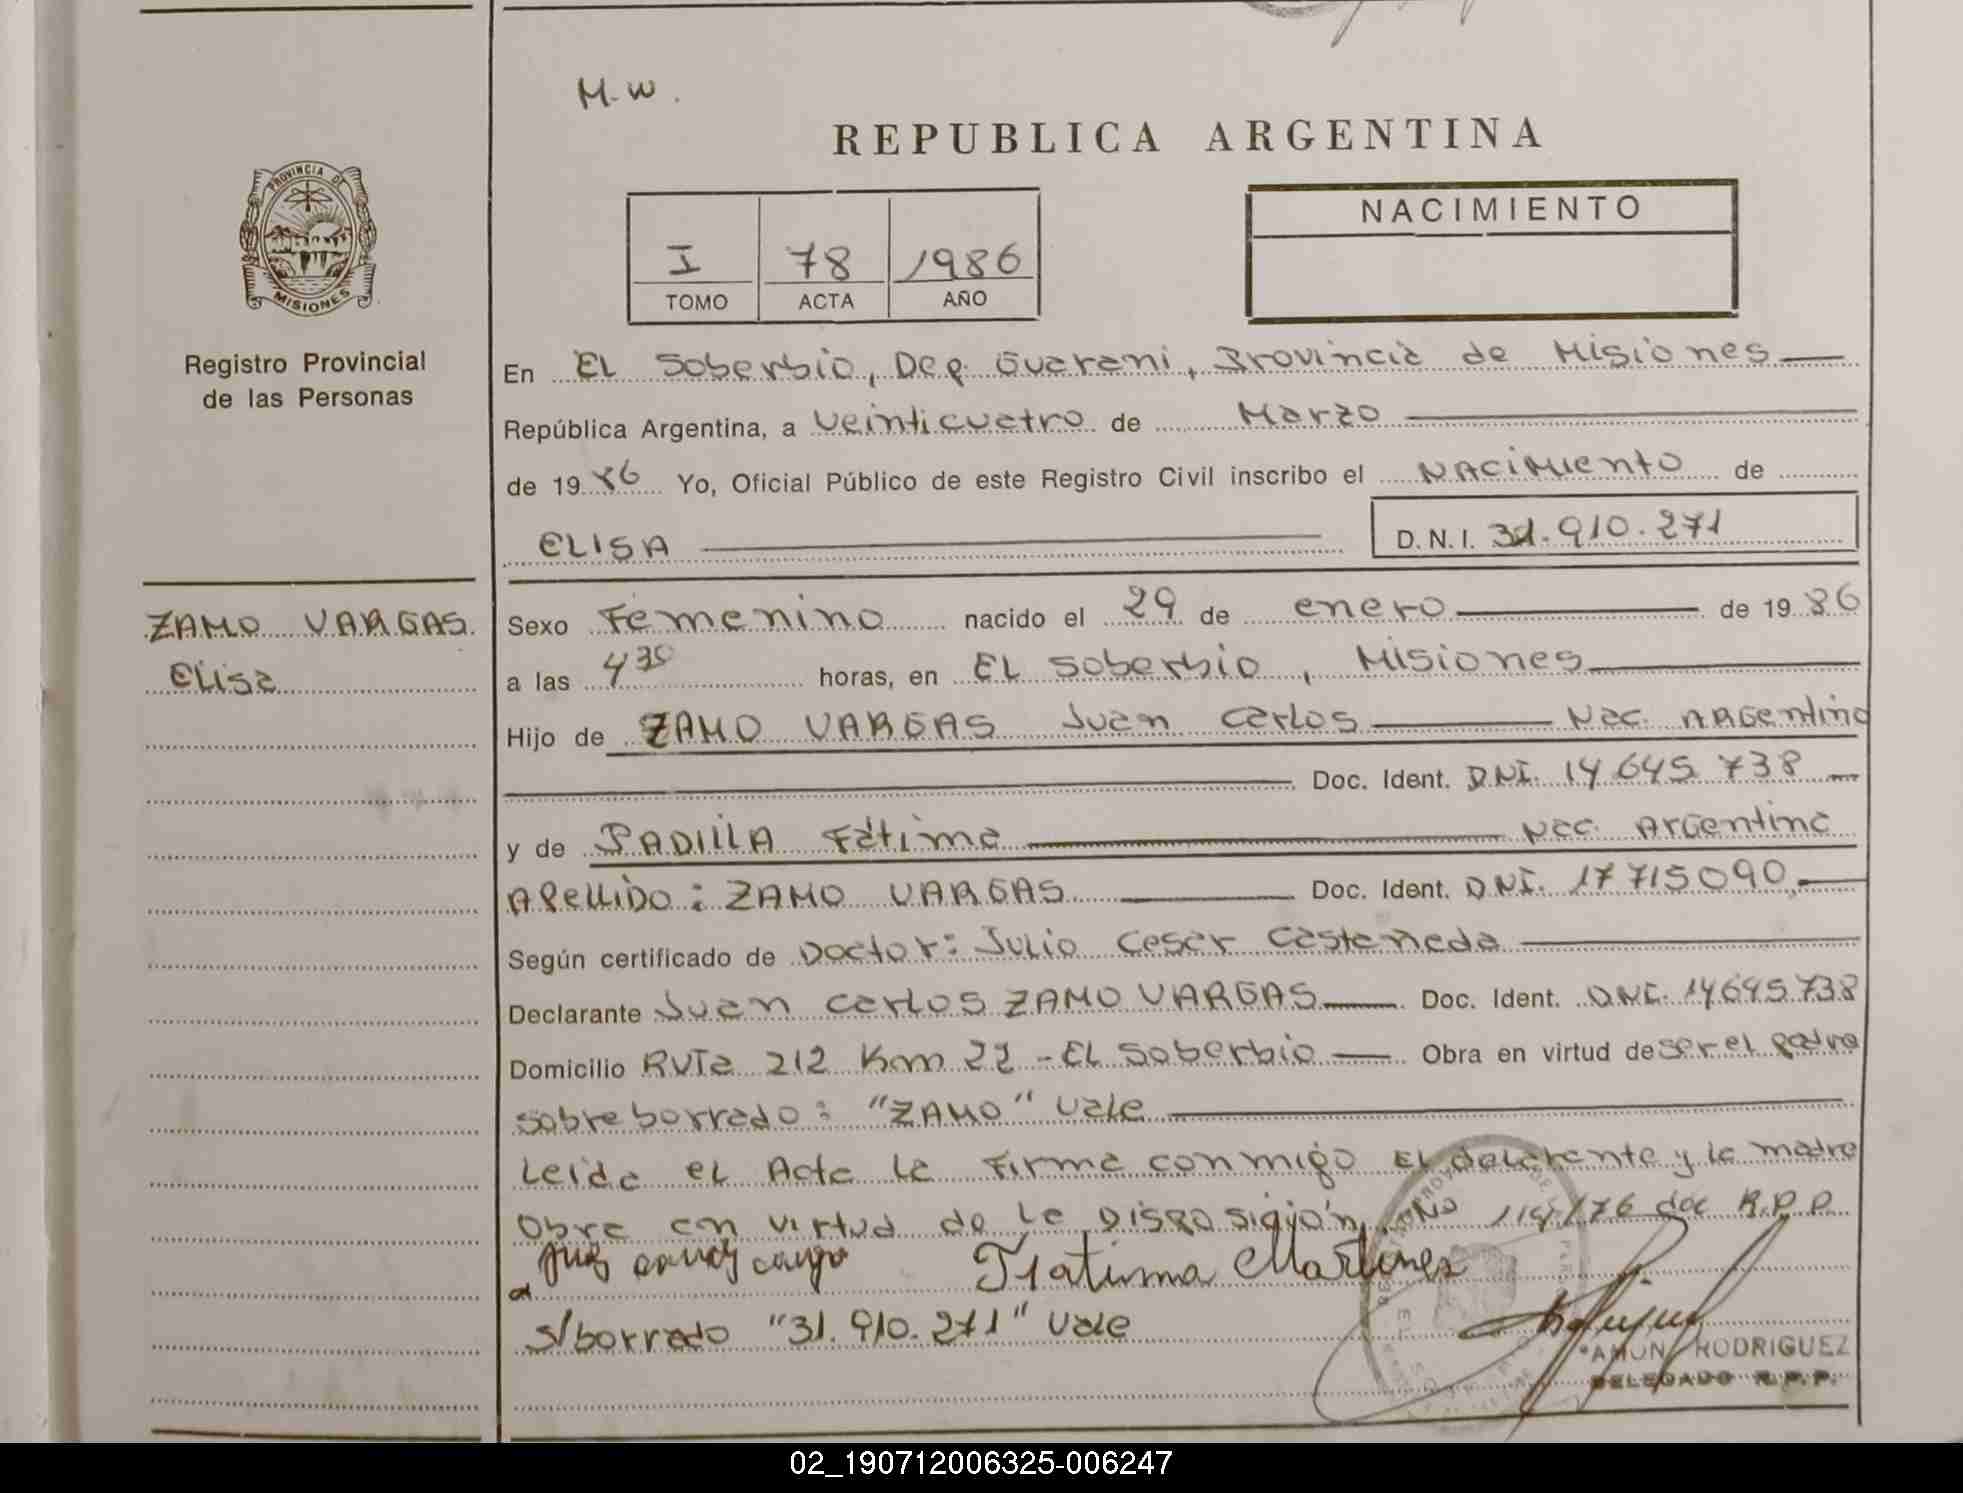 M-W.
REPUBLICA ARGENTINA
PROVINCIA DE MISIONES
Registro Provincial
de las Personas
I 78 1986
TOMO ACTA AÑO
NACIMIENTO
En EL Soberbio, Dep. Guarani, Provincia de Misiones
República Argentina, a veinticuatro de Marzo
de 1986 Yo, Oficial Público de este Registro Civil inscribo el NACiMiento de
ELISA D.N.I. 31.910.271
ZAMO VARGAS
Elisa
Sexo Femenino nacido el 29 de enero de 1986
a las 4 30 horas, en EL Soberbio, Misiones
Hijo de ZAMO VARGAS Juan Carlos Nac. ARGentino
Doc. Ident. D.N.I. 14 645 738
y de PADILLA Fátima Nac. ArGentina
APELLIDO: ZAMO VARGAS Doc. Ident. D.N.I. 17 715 090
Según certificado de Doctor: Julio Cesar Casteñeda
Declarante Juan Carlos ZAMO VARGAS Doc. Ident. D.N.I. 14645738
Domicilio RUTa 212 Km 22 - EL Soberbio Obra en virtud de ser el padre
Sobre borrado: "ZAMO" Vale
Leida el Acta la Firma conmigo El y la madre
Obra en virtud de la No 114/76 del R.P.P.
Fratima Martines
s/borrado "31.910.271" Vale
AMON RODRIGUEZ
DELEGADO R.P.P.
02_190712006325-006247